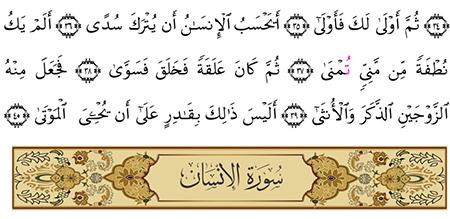 ﴿٣٤﴾ ثُمَّ أَوْلَىٰ لَكَ فَأَوْلَىٰٓ ﴿٣٥﴾ أَيَحْسَبُ ٱلْإِنسَـٰنُ أَن يُتْرَكَ سُدًى ﴿٣٦﴾ أَلَمْ يَكُ
نُطْفَةً مِّن مَّنِىٍّ تُمْنَىٰ ﴿٣٧﴾ ثُمَّ كَانَ عَلَقَةً فَخَلَقَ فَسَوَّىٰ ﴿٣٨﴾ فَجَعَلَ مِنْهُ
ٱلزَّوْجَيْنِ ٱلذَّكَرَ وَٱلْأُنثَىٰٓ ﴿٣٩﴾ أَلَيْسَ ذَٰلِكَ بِقَـٰدِرٍ عَلَىٰٓ أَن يُحْـِۧىَ ٱلْمَوْتَىٰ ﴿٤٠﴾
سُورَةُ الإِنْسَان